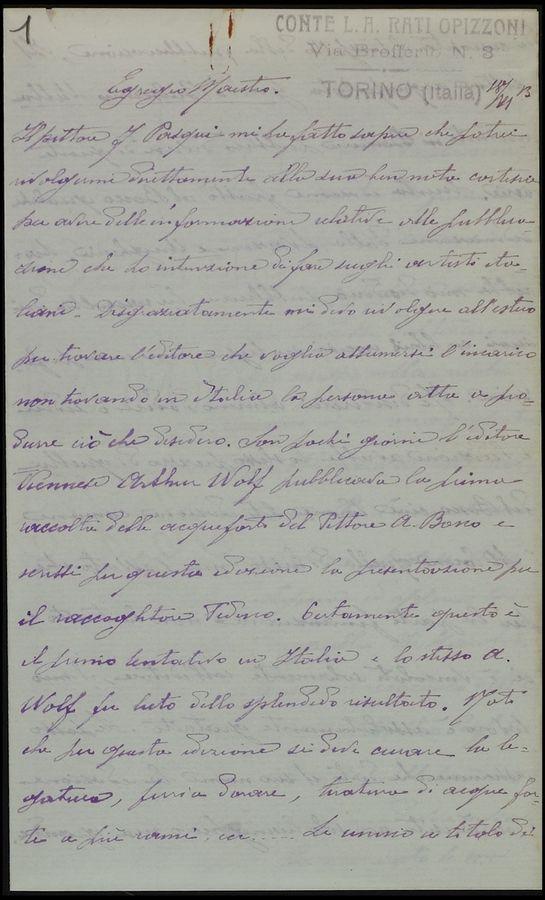 1
CONTE L. A. RATI OPIZZONI
Via Brofferio, N. 3
TORINO (Italia) 13
Egregio Maestro.
Il pittore J Pasqui mi ha fatto sapere che potrei
rivolgermi direttamente alla sua ben nota cortesia
per avere delle informazioni relative alle pubblica-
zione che ho intenzione di fare sugli artisti ita-
liani. Disgraziatamente mi devo rivolgere all'estero
per trovare l'editore che voglia assumersi l'incarico
non trovando in Italia la persona atta a pro-
durre ciò che desidero. Son pochi giorni l'editore
Viennese Arthur Wolf pubblicava la prima
raccolta delle acqueforti del Pittore A. Bosco e
scrissi per questa edizione la presentazione per
il raccoglitore Tedesco. Certamente questo è
il primo tentativo in Italia e lo stesso A.
Wolf fu lieto dello splendido risultato. Noti
che per questa edizione si deve curare la le-
gatura, ferri a dorare, tiratura di acque for-
ti a più rami ecc.... Le unisco a titolo di